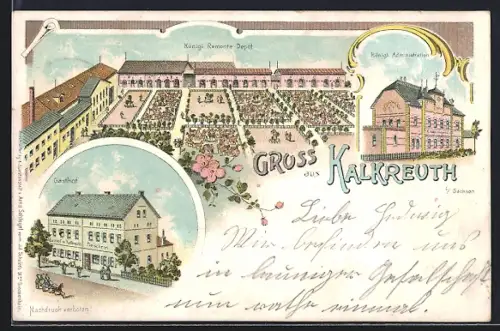 Königl. Remonte Depôt
Königl. Administration
GRUSS
aus
KALKREUTH
i/ Sachsen
Gasthof
Liebe Hedwig
Wir befinden uns
in launiger Gesellschaft
nun rathe einmal.
Nachdruck verboten